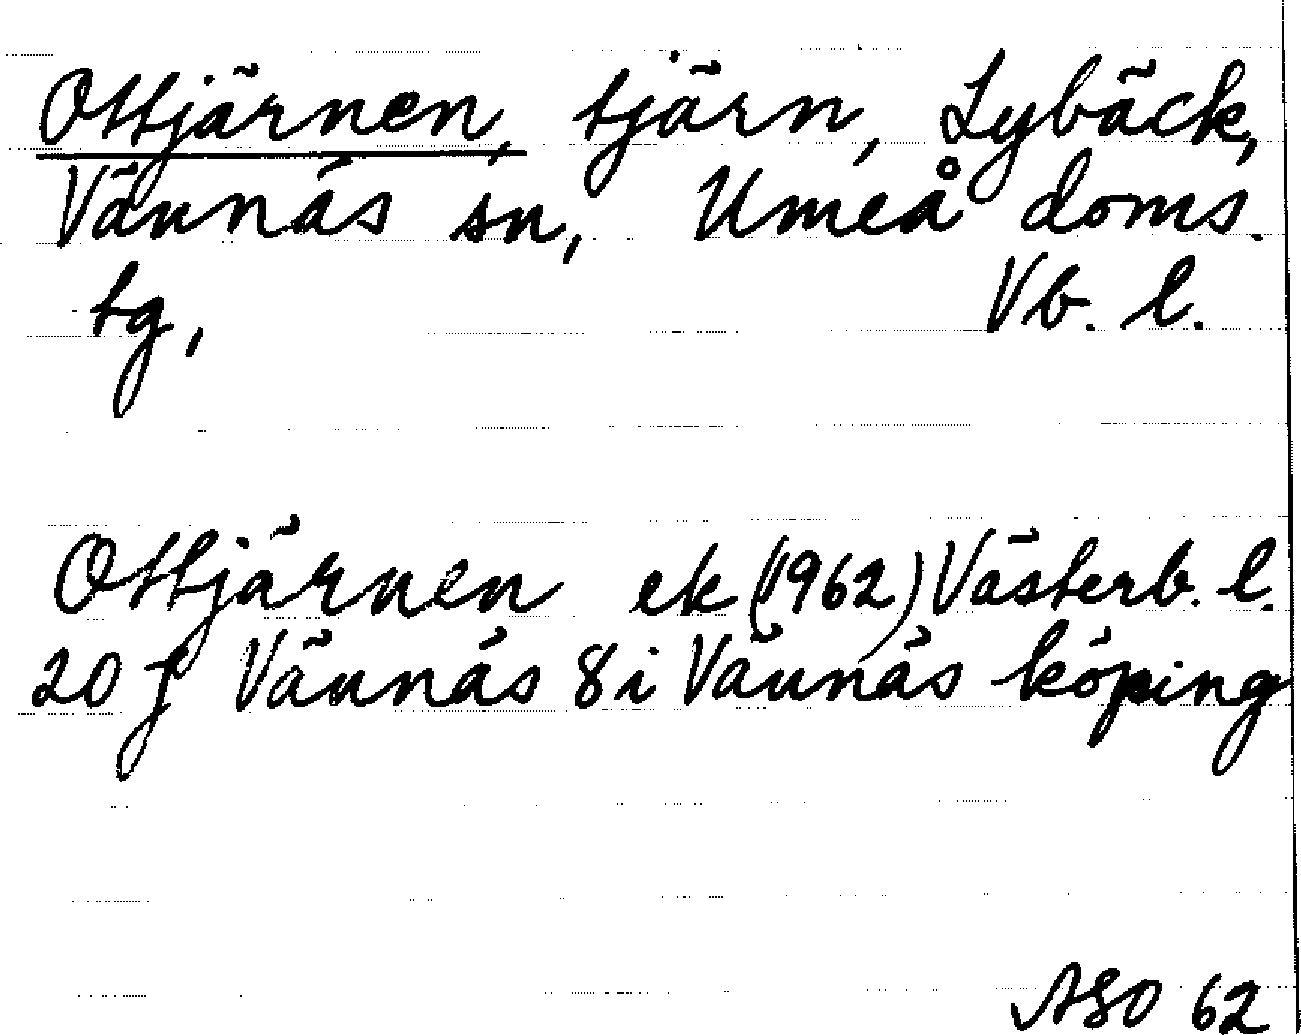 Ottjärnen, tjärn, Lybäck,
Vännäs sn, Umeå doms.
tg, Vb. l.
Ottjärnen ek (1962) Västerb. l.
20 J Vännäs 8 i Vännäs köping
ASO 62